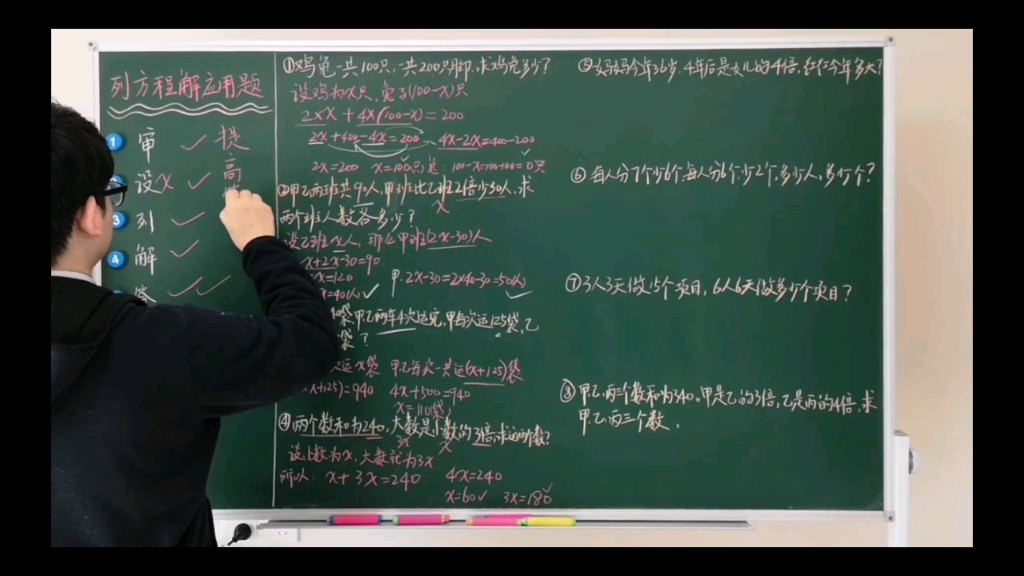 列方程解应用题
1 审 ✓ 提
2 设x ✓ 高
3 列 ✓
4 解 ✓
答 ✓✓
①鸡兔一共100只,一共200只脚,求鸡兔多少?
设鸡为x只,兔为(100-x)只
2×x+4×(100-x)=200
2x+400-4x=200 4x-2x=400-200
2x=200 x=100只 兔 100-x=100-100=0只
②甲乙两班共90人,甲班比乙班2倍少30人,求
x
两个班人数各多少?
设乙班x人,那么甲班(2x-30)人
x+2x-30=90
x=120 甲:2x-30=2×40-30=50(人) ✓
x=40(人) ✓
袋,甲乙两车4次运完,甲每次运125袋,乙
袋?
运x袋 甲乙每次一共运(x+125)袋
x+125)=940 4x+500=940
x=110袋
④两个数和为240,大数是小数的3倍,求这两个数?
3x x
设小数为x,大数就为3x
所以:x+3x=240 4x=240
x=60✓ 3x=180✓
⑤妈妈今年36岁,4年后是女儿的4倍,女儿今年多大?
⑥每人分7个少6个,每人分6个少2个,多少人,多少个?
⑦3人3天做15个项目,6人6天做多少个项目?
⑧甲.乙.丙三个数和为340。甲是乙的3倍,乙是丙的4倍,求
甲.乙.丙三个数.